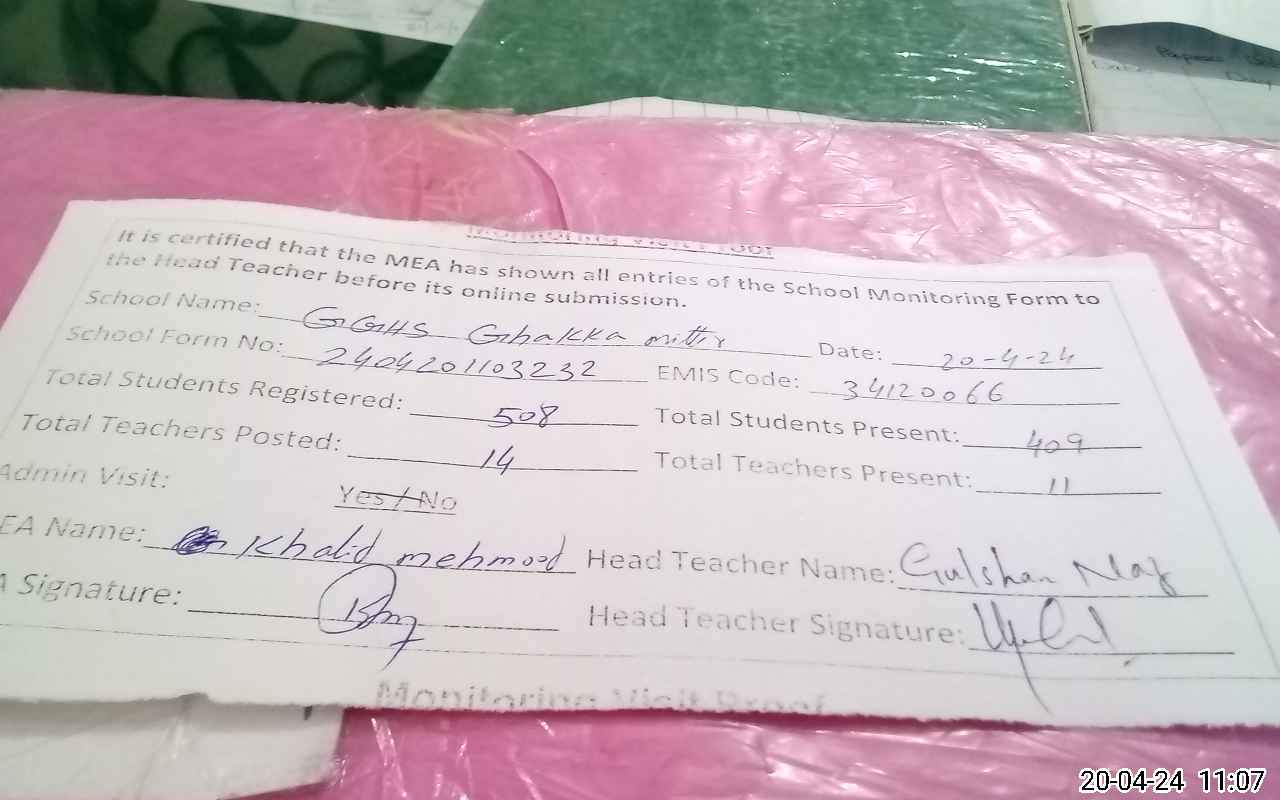 Monitoring Visit Proof
It is certified that the MEA has shown all entries of the School Monitoring Form to
the Head Teacher before its online submission.
School Name: GGHS Ghakka mittr Date: 20-4-24
School Form No: 2404201103232 EMIS Code: 34120066
Total Students Registered: 508 Total Students Present: 409
Total Teachers Posted: 14 Total Teachers Present: 11
Admin Visit: Yes / No
EA Name: Khalid mehmood Head Teacher Name: Gulshan Naz
A Signature: Head Teacher Signature:
Monitoring Visit Proof
20-04-24 11:07